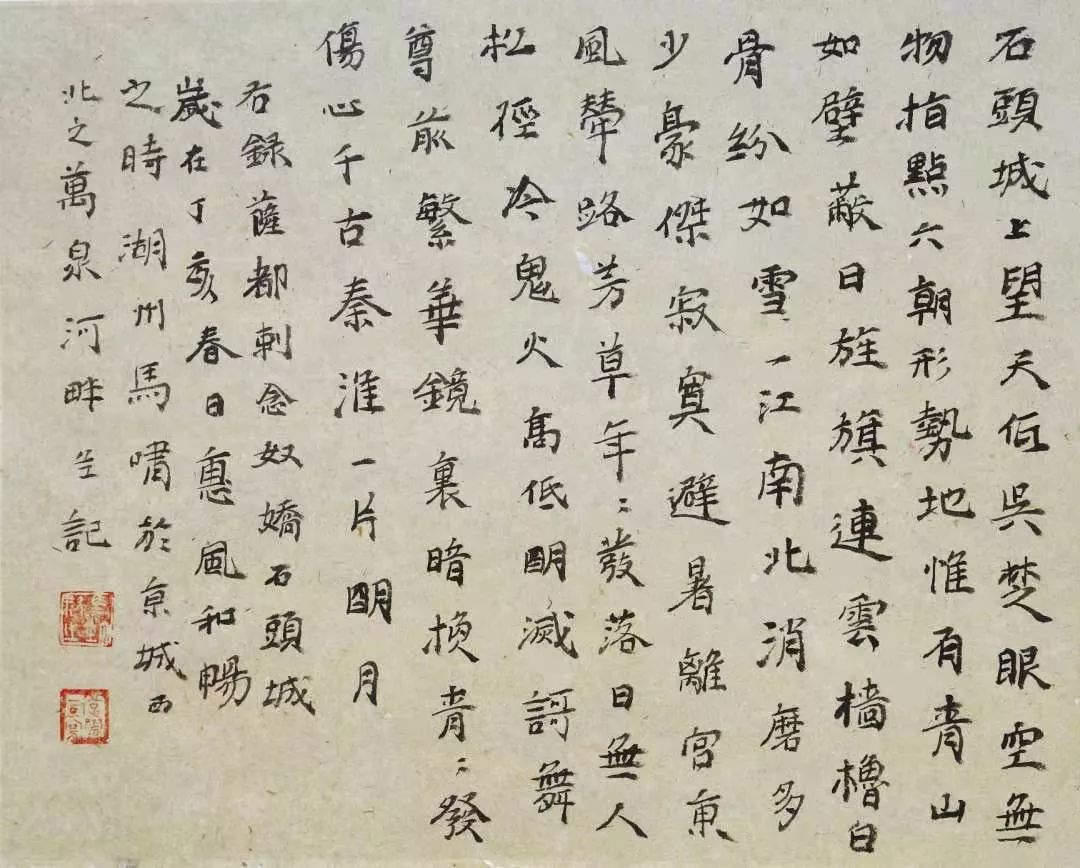 石頭城上望天低吳楚眼空無
物指點六朝形勢地惟有青山
如壁蔽日旌旗連雲檣櫓白
骨紛如雪一江南北消磨多
少豪傑寂寞避暑離宮東
風輦路芳草年〻發落日無人
松徑冷鬼火高低明滅謌舞
尊前繁華鏡裏暗換青〻發
傷心千古秦淮一片明月
右録薩都剌念奴嬌石頭城
歲在丁亥春日惠風和暢
之時湖州馬嘯於京城西
北之萬泉河畔並記